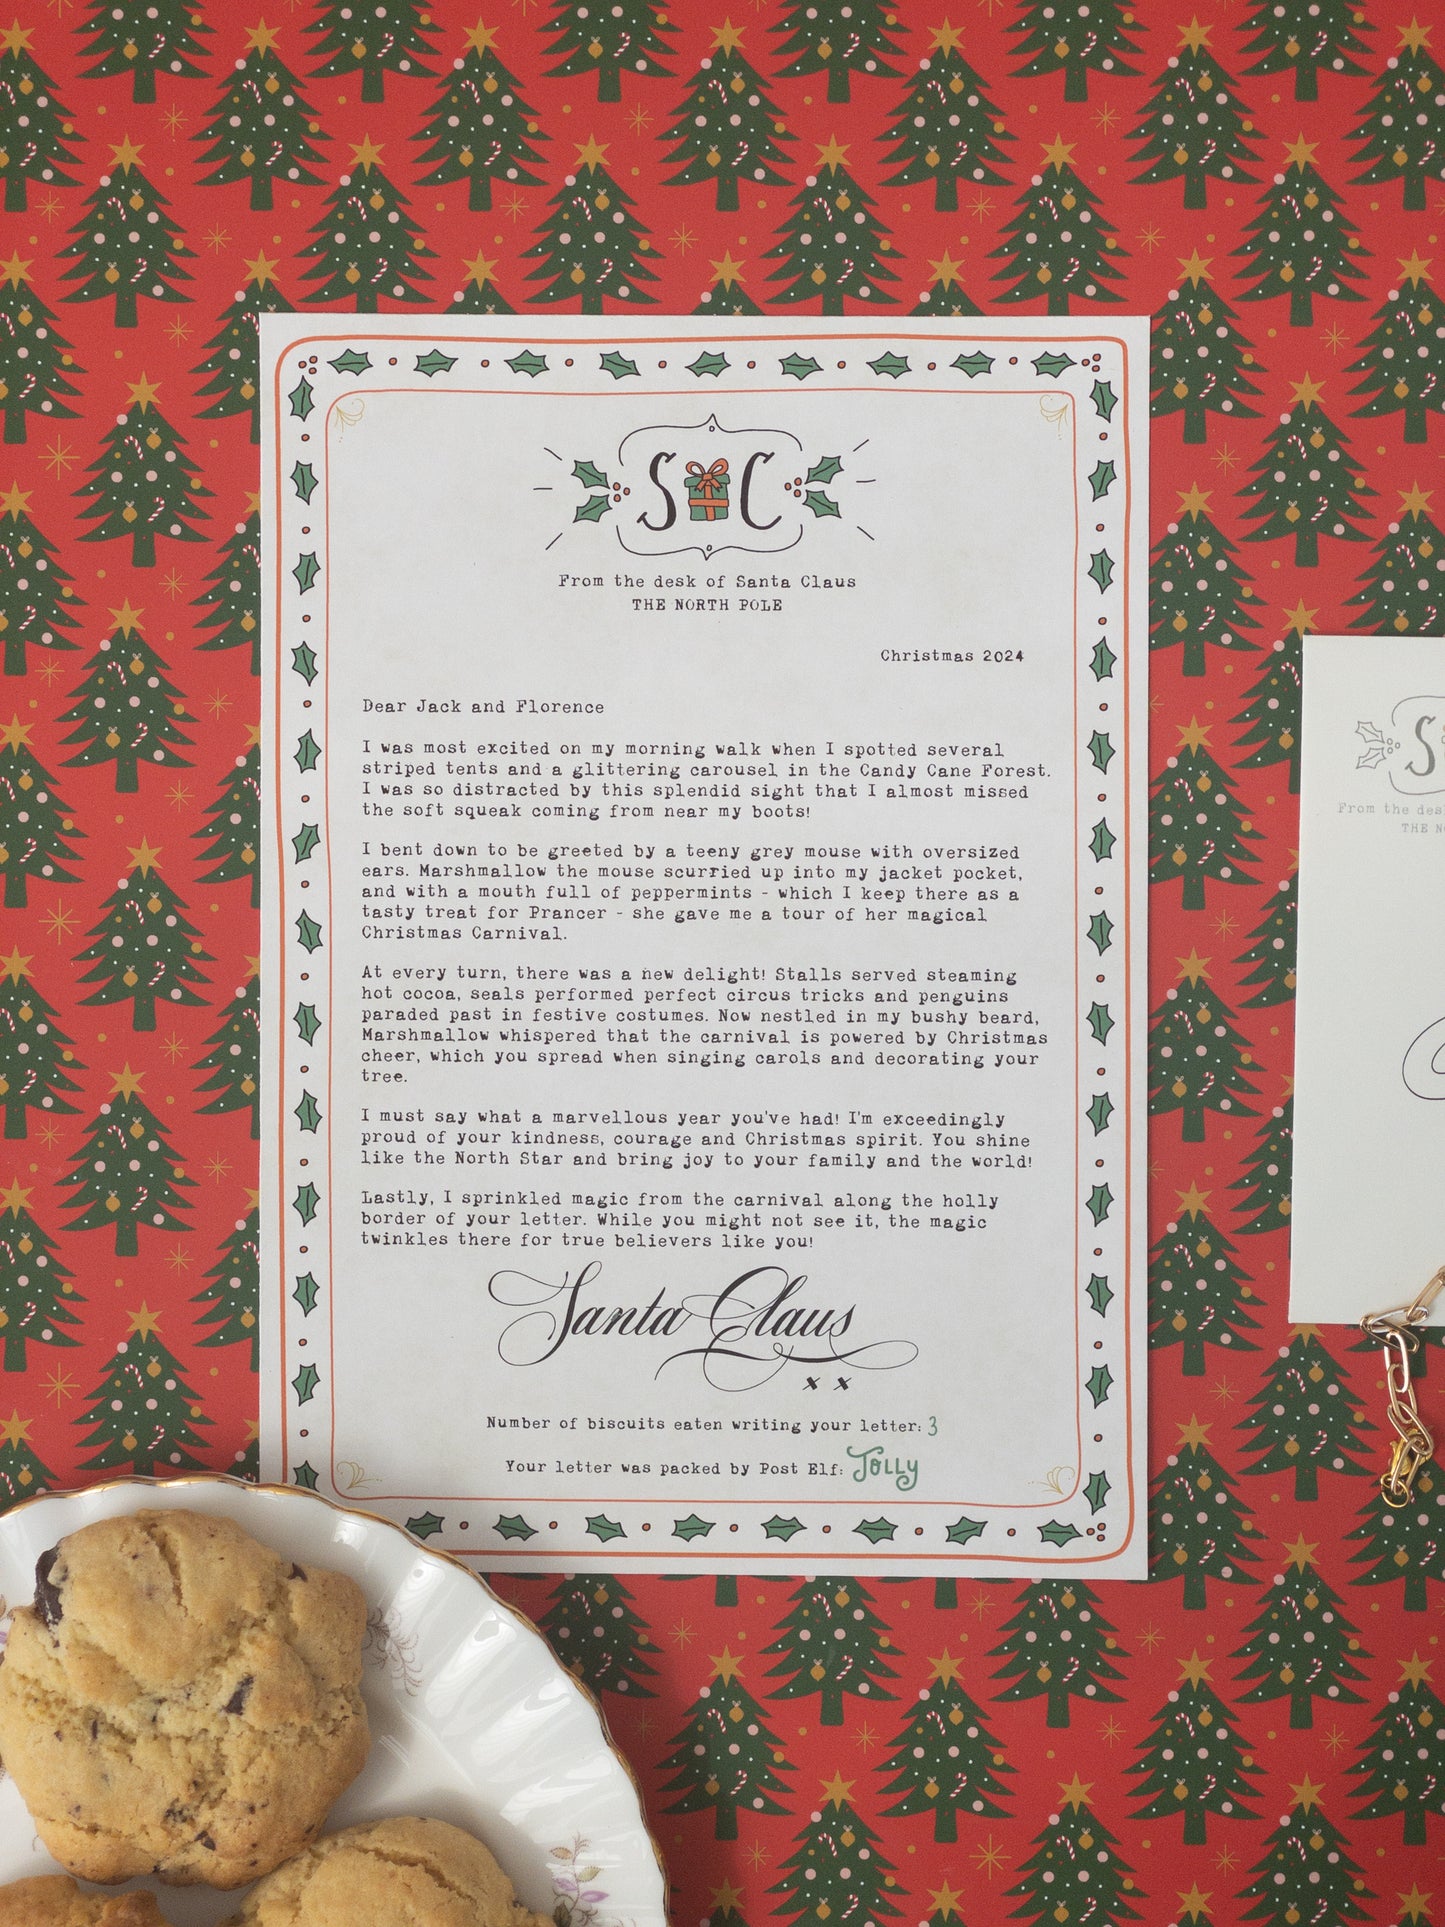 S C
From the desk of Santa Claus
THE NORTH POLE
Christmas 2024
Dear Jack and Florence
I was most excited on my morning walk when I spotted several
striped tents and a glittering carousel in the Candy Cane Forest.
I was so distracted by this splendid sight that I almost missed
the soft squeak coming from near my boots!
I bent down to be greeted by a teeny grey mouse with oversized
ears. Marshmallow the mouse scurried up into my jacket pocket,
and with a mouth full of peppermints - which I keep there as a
tasty treat for Prancer - she gave me a tour of her magical
Christmas Carnival.
At every turn, there was a new delight! Stalls served steaming
hot cocoa, seals performed perfect circus tricks and penguins
paraded past in festive costumes. Now nestled in my bushy beard,
Marshmallow whispered that the carnival is powered by Christmas
cheer, which you spread when singing carols and decorating your
tree.
I must say what a marvellous year you've had! I'm exceedingly
proud of your kindness, courage and Christmas spirit. You shine
like the North Star and bring joy to your family and the world!
Lastly, I sprinkled magic from the carnival along the holly
border of your letter. While you might not see it, the magic
twinkles there for true believers like you!
Santa Claus
x x
Number of biscuits eaten writing your letter: 3
Your letter was packed by Post Elf: JOLLY
S
From the des
THE N